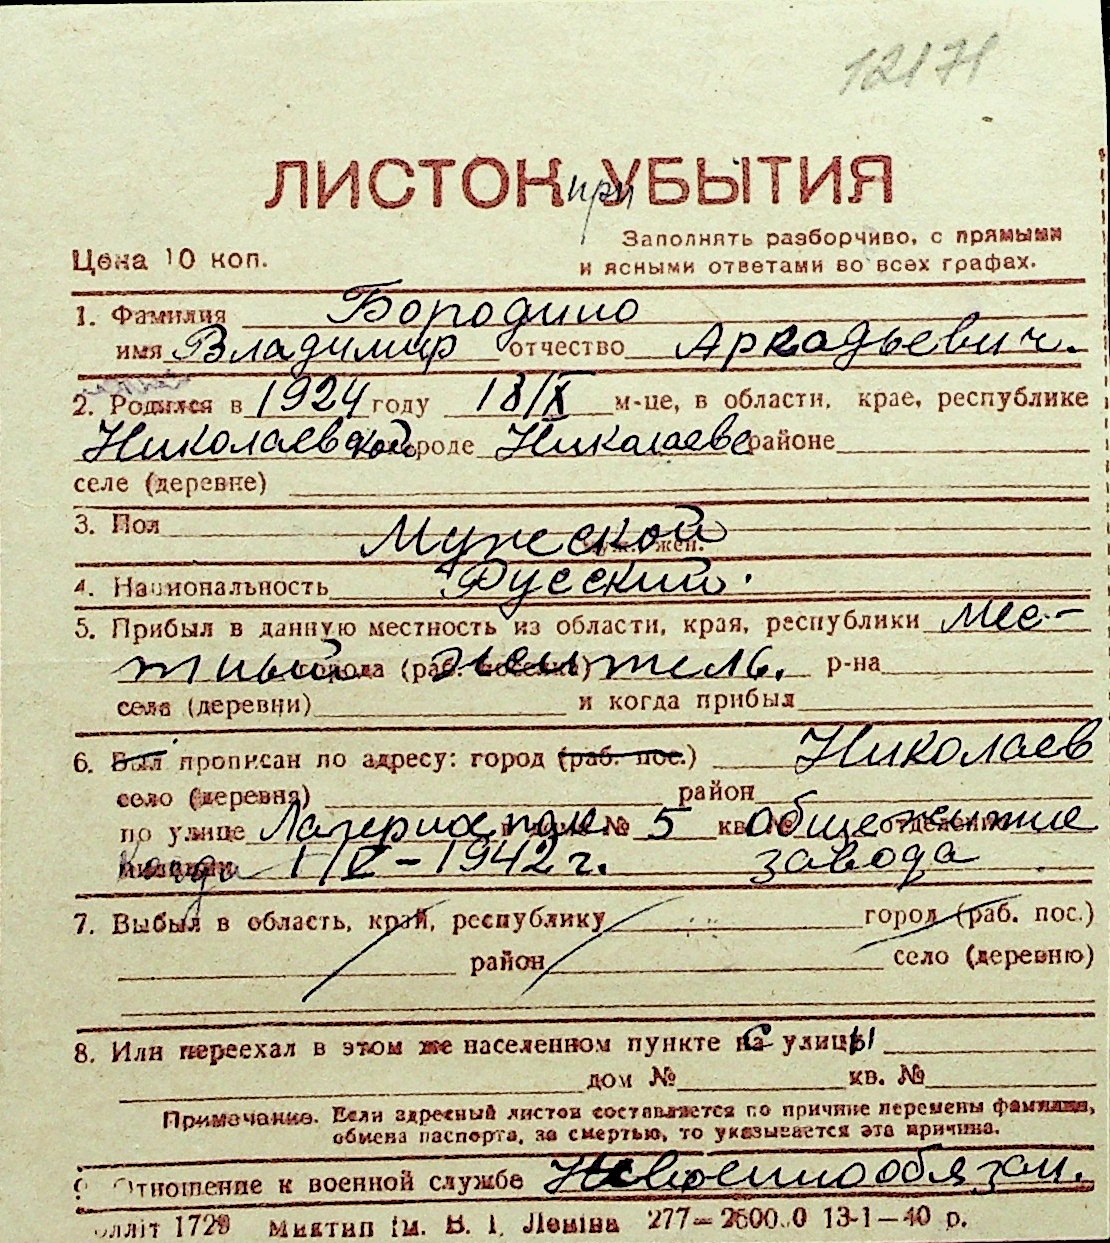 12171
ЛИСТОК при УБЫТИЯ
Цена 10 коп.
Заполнять разборчиво, с прямыми
и ясными ответами во всех графах.
1. Фамилия Бородино
имя Владимир отчество Аркадьевич.
2. Родился в 1924 году 18/X м-це, в области, крае, республике
Николаевской городе Николаеве районе
селе (деревне)
3. Пол Мужской
муж. жен.
4. Национальность Русский.
5. Прибыл в данную местность из области, края, республики мес-
тный города (раб. поселка) житель. р-на
села (деревни) и когда прибыл
6. Был прописан по адресу: город (раб. пос.) Николаев
село (деревня) район
по улице дом № 5 кв. № общежитие отделение
милиции Когда 1/V-1942 г. завода
7. Выбыл в область, край, республику город (раб. пос.)
район село (деревню)
8. Или переехал в этом же населенном пункте с улицы
дом № кв. №
Примечание. Если адресный листок составляется по причине перемены фамилии,
обмена паспорта, за смертью, то указывается эта причина.
9. Отношение к военной службе Невоеннообязан.
Оолліт 1729 Миктип ім. В. І. Леніна 277—2600.0 13-1—40 р.